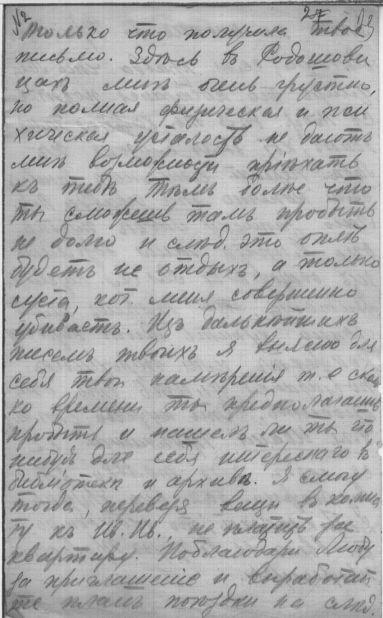 №2 27
Только что получила твое
письмо. Здѣсь въ Радошкови
цахъ мнѣ очень грустно,
но полная физическая и пси
хическая усталость не даютъ
мнѣ возможности пріѣхать
къ тебѣ тѣмъ болѣе что
ты сможешь тамъ пробыть
не долго и слѣд. это опять
будетъ не отдыхъ, а только
суета, кот. меня совершенно
убиваетъ. Изъ дальнѣйшихъ
писемъ твоихъ я выясню для
себя твои намѣренія т.е сколь
ко времени ты предполагаешь
пробыть и нашелъ ли ты что
нибудь для себя интереснаго въ
библіотекѣ и архивѣ. Я смогу
тогда, перевезя вещи въ комна
ту къ Ив. Ив. не платить за
квартиру. Поблагодари Любу
за приглашеніе и выработай
те планъ поѣздки на слѣд.